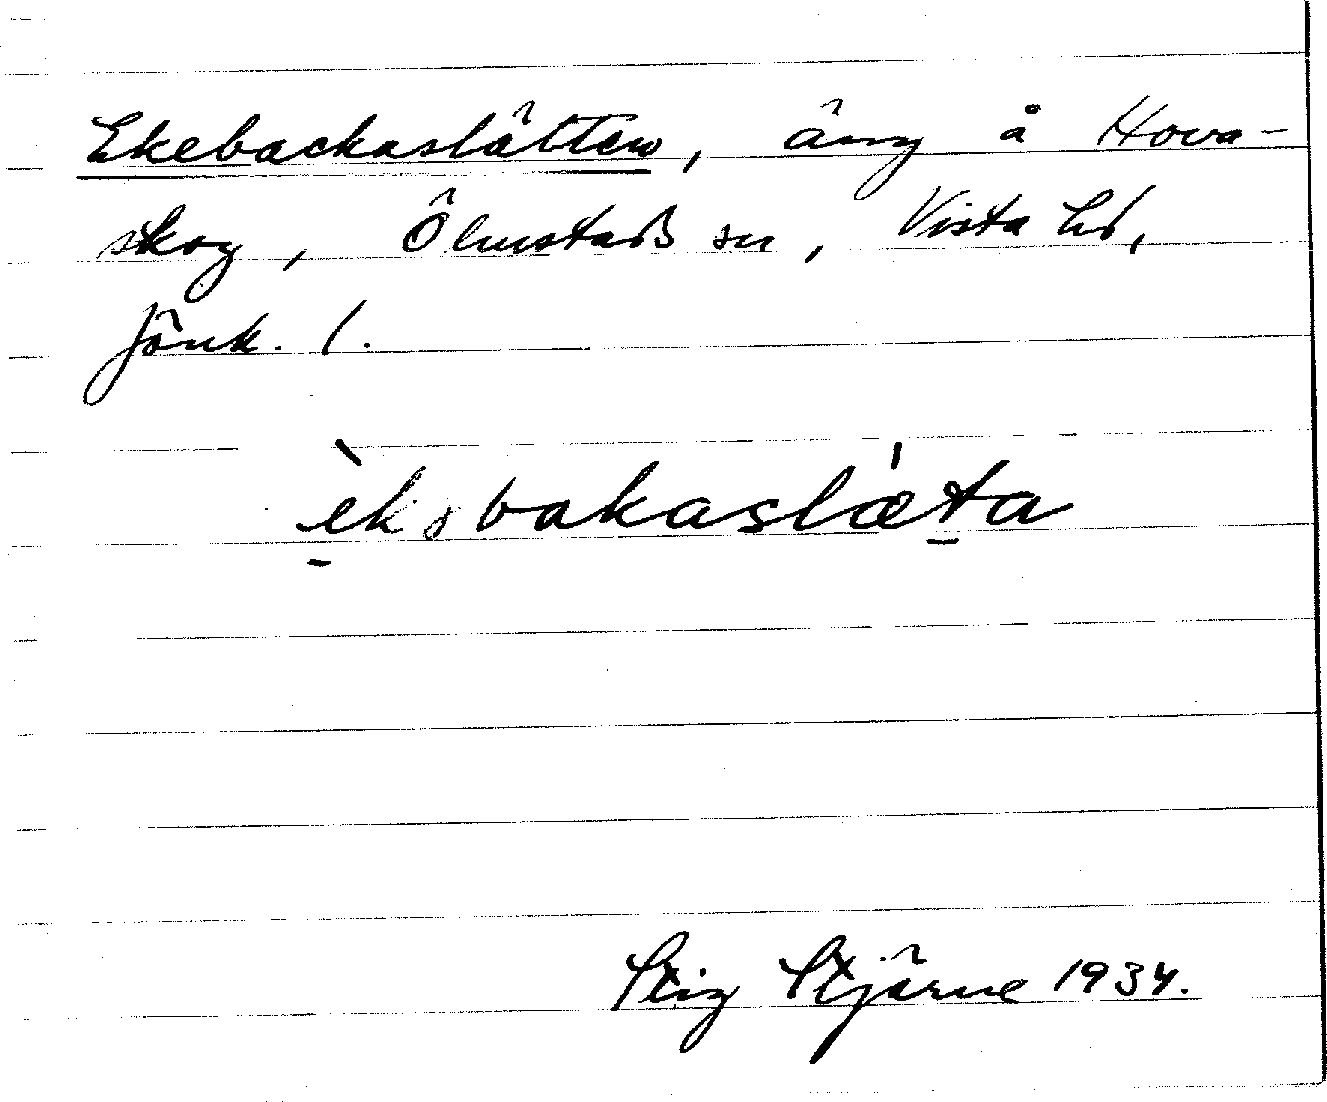 Ekebackaslätten, äng å Hova-
skog, Ölmstads sn, Vista hd,
Jönk. l.
èkəbakaslæ̍ta
Stig Stjärne 1934.